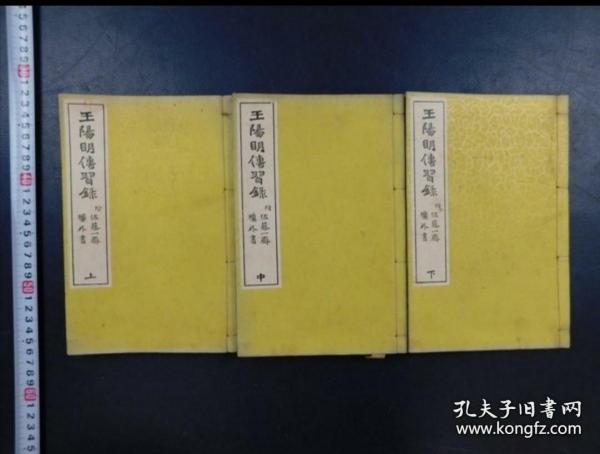 王陽明傳習錄
附 佐藤一齋
欄外書
上
王陽明傳習錄
附 佐藤一齋
欄外書
中
王陽明傳習錄
附 佐藤一齋
欄外書
下
孔夫子旧書网
www.kongfz.com